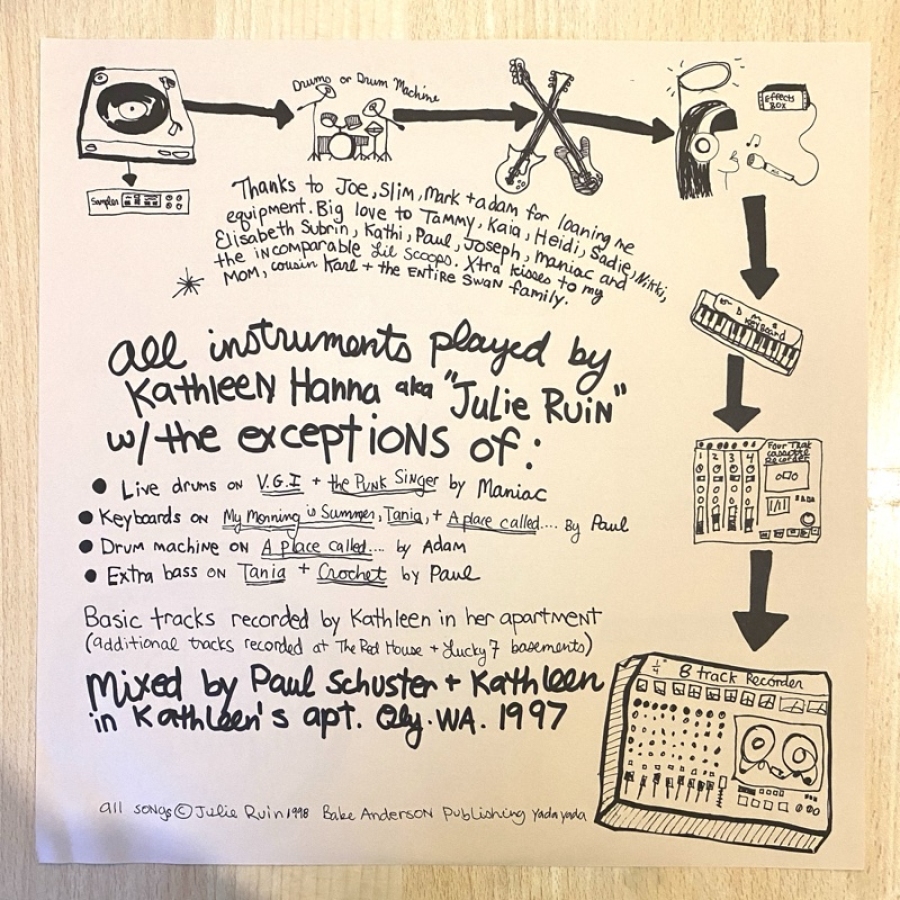 Drums or Drum Machine
Effects
Box
Sampler
Thanks to Joe, Slim, Mark + adam for loaning me
equipment. Big love to Tammy, Kaia, Heidi, Sadie, Nikki,
Elisabeth Subrin, Kathi, Paul, Joseph, Maniac and
the incomparable Lil Scoops. Xtra kisses to my
Mom, cousin Karl + the ENTIRE SWAN family.
Keyboard
all instruments played by
Kathleen Hanna aka "Julie Ruin"
w/ the exceptions of:
Four Trak
cassette
Recorder
1 2 3 4
• Live drums on V.G.I + the Punk Singer by Maniac
• Keyboards on My Morning is Summer, Tania, + A place called.... By Paul
• Drum machine on A place called.... by Adam
• Extra bass on Tania + Crochet by Paul
Basic tracks recorded by Kathleen in her apartment
(additional tracks recorded at The Red House + Lucky 7 basements)
1/4" 8 track Recorder
Mixed by Paul Schuster + Kathleen
in Kathleen's apt. Oly. WA. 1997
all songs © Julie Ruin 1998 Bake Anderson Publishing yada yada